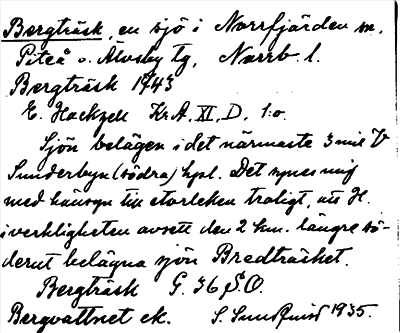 Bergträsk, en sjö i Norrfjärden sn,
Piteå o. Älvsby tg, Norrb l.
Bergträsk 1743
E. Hackzell Kr.A. XI, D, 1:o.
Sjön belägen i det närmaste 3 mil V
Sunderbyn (södra) kpl. Det synes mig
med hänsyn till storleken troligt, att H.
i verkligheten avsett den 2 km. längre sö-
derut belägna sjön Bredträsket.
Bergträsk G. 36 S.O.
Bergvattnet ek. S. Sundqvist 1935.